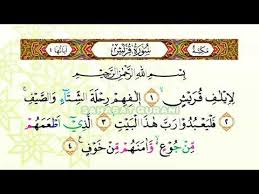 مكية سُورَةُ قُرَيْشٍ آياتها ٤
بِسْمِ اللَّهِ الرَّحْمَٰنِ الرَّحِيمِ
لِإِيلَٰفِ قُرَيْشٍ ١ إِۦلَٰفِهِمْ رِحْلَةَ ٱلشِّتَآءِ وَٱلصَّيْفِ
٢ فَلْيَعْبُدُوا۟ رَبَّ هَٰذَا ٱلْبَيْتِ ٣ ٱلَّذِىٓ أَطْعَمَهُم
مِّن جُوعٍ وَءَامَنَهُم مِّنْ خَوْفٍۭ ٤